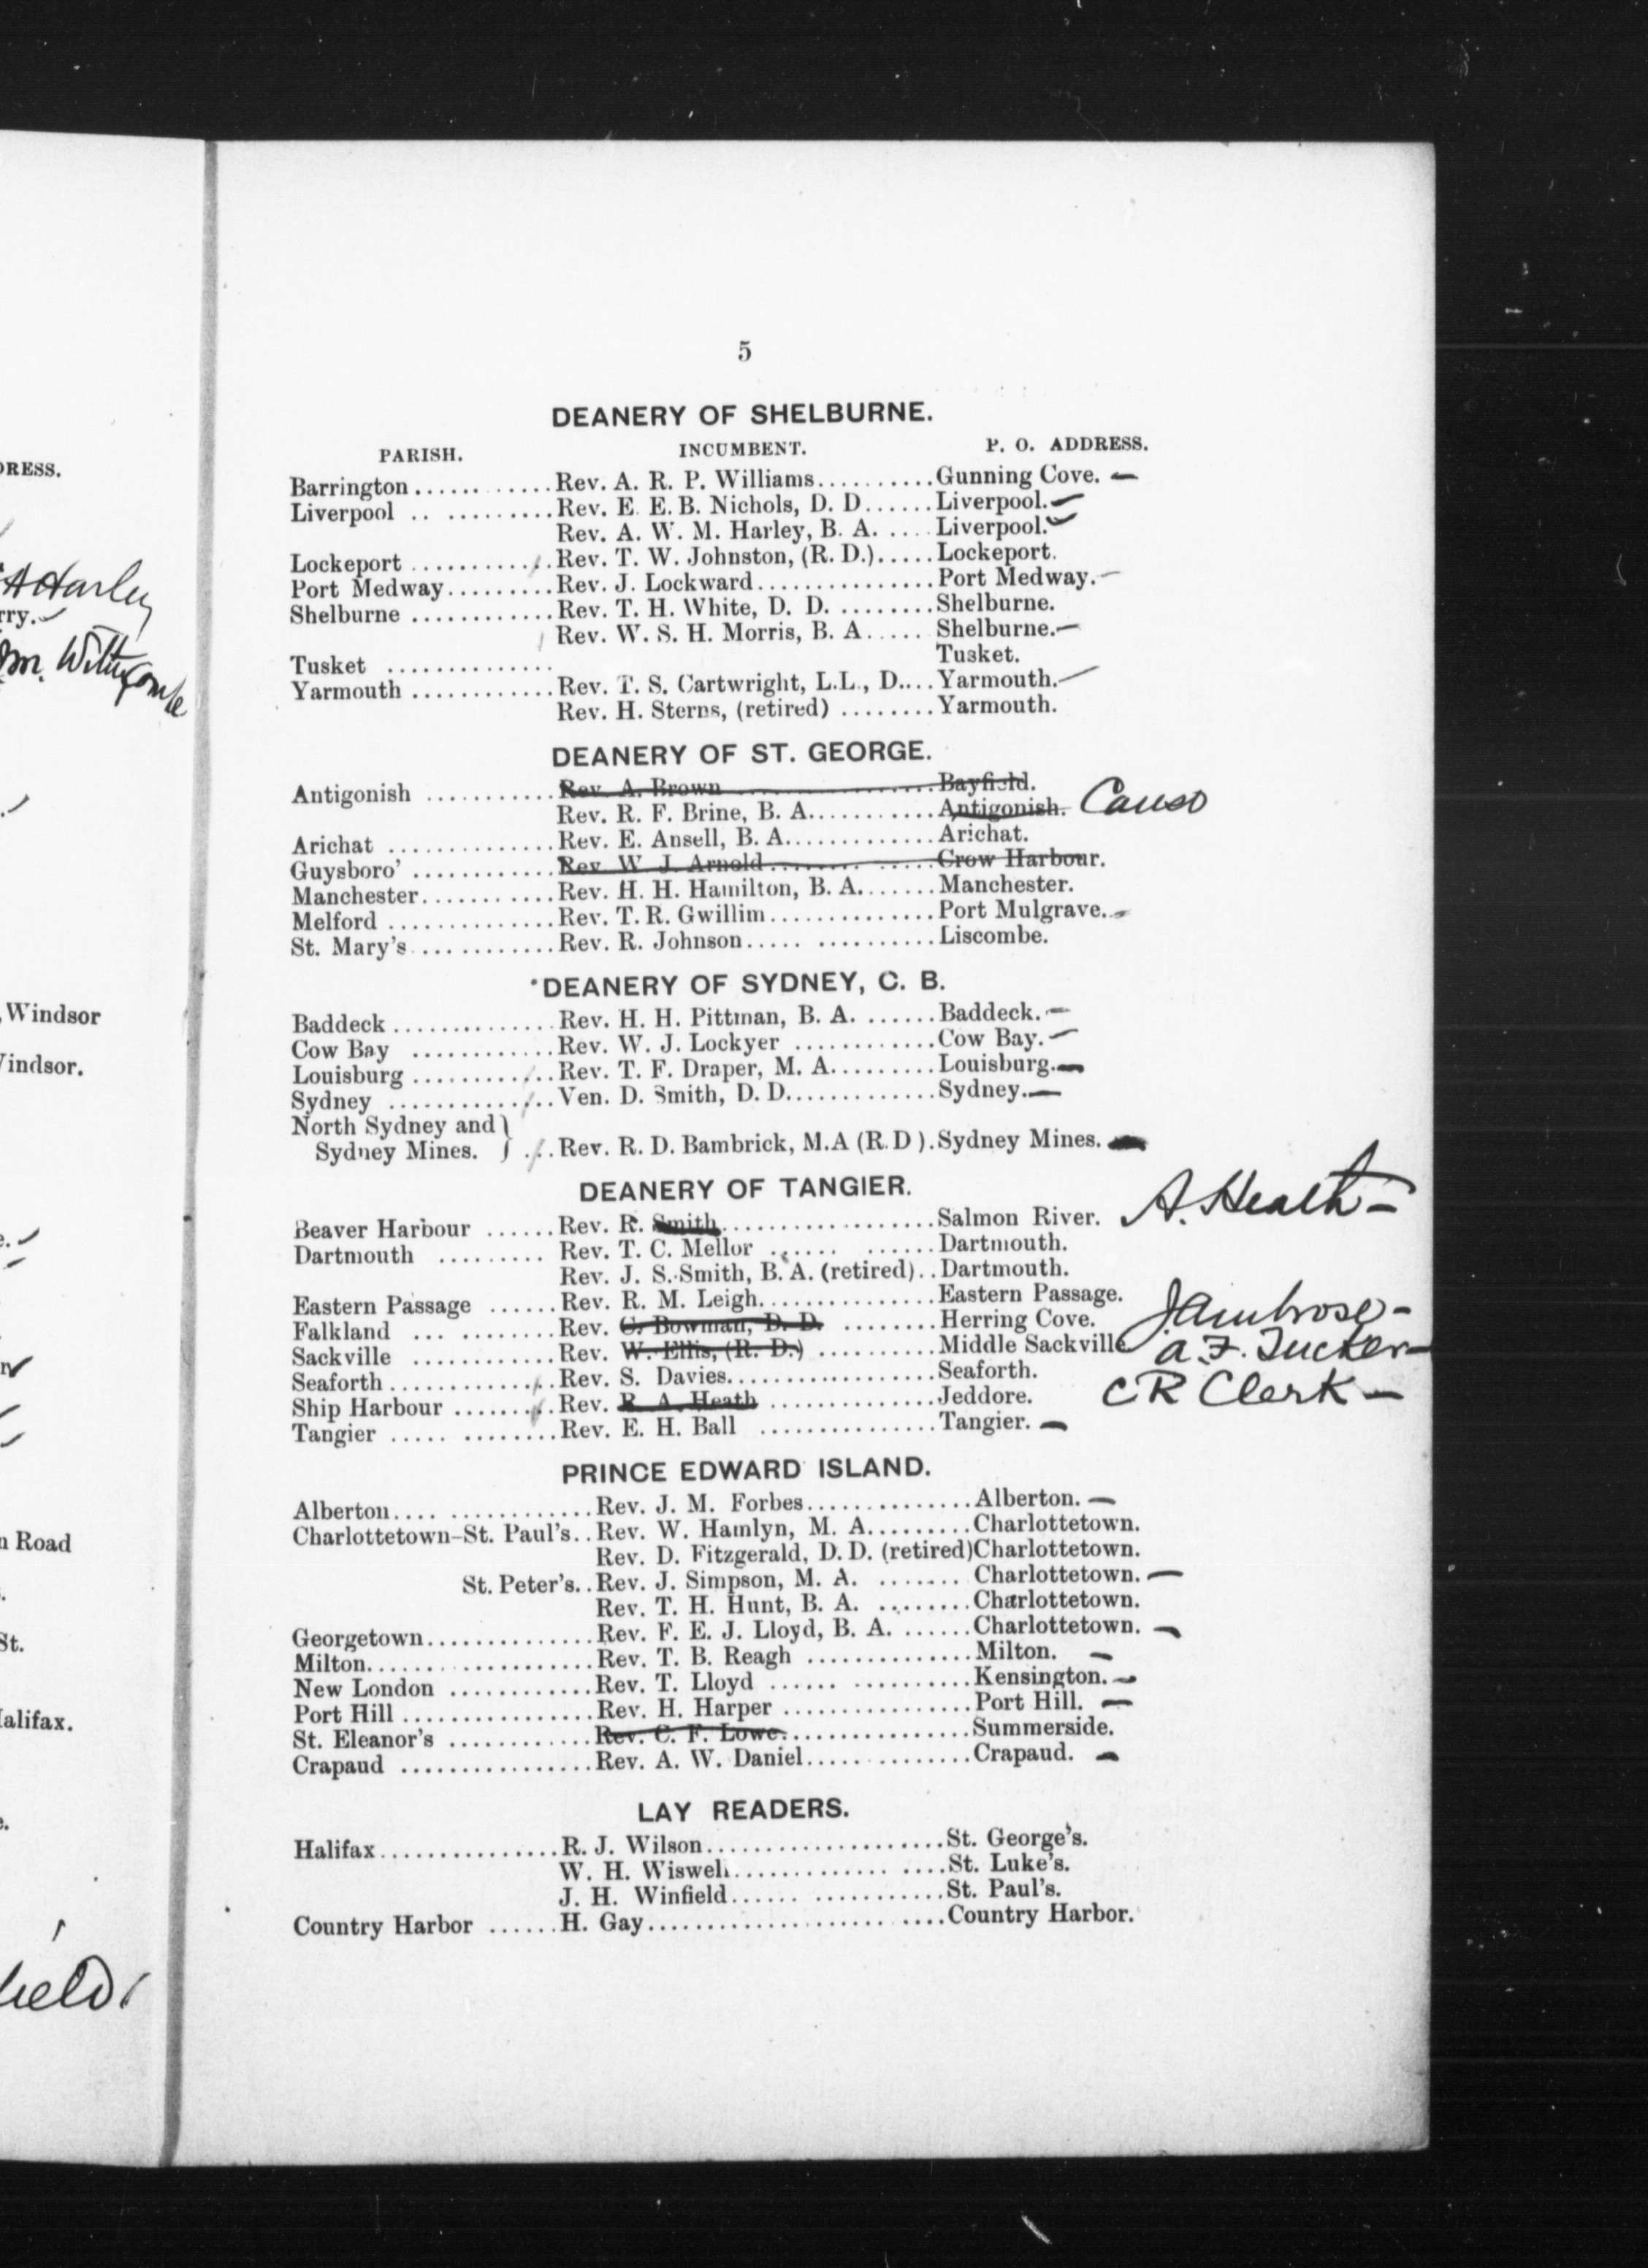 DRESS.
A Harley
rry.
Windsor
Windsor.
n Road
St.
Halifax.
5
DEANERY OF SHELBURNE.
PARISH. INCUMBENT. P. O. ADDRESS.
Barrington...........Rev. A. R. P. Williams..........Gunning Cove. —
Liverpool ...........Rev. E. E. B. Nichols, D. D......Liverpool.
Rev. A. W. M. Harley, B. A. ....Liverpool.
Lockeport ............Rev. T. W. Johnston, (R. D.).....Lockeport.
Port Medway.........Rev. J. Lockward...............Port Medway.
Shelburne ............Rev. T. H. White, D. D. ........Shelburne.
Rev. W. S. H. Morris, B. A..... Shelburne.
Tusket .............. Tusket.
Yarmouth ............Rev. T. S. Cartwright, L.L., D....Yarmouth.
Rev. H. Sterns, (retired) ........Yarmouth.
DEANERY OF ST. GEORGE.
Antigonish ...........Rev. A. Brown..................Bayfield.
Rev. R. F. Brine, B. A...........Antigonish. Canso
Arichat ..............Rev. E. Ansell, B. A.............Arichat.
Guysboro' ............Rev. W. J. Arnold..............Crow Harbour.
Manchester...........Rev. H. H. Hamilton, B. A.......Manchester.
Melford ..............Rev. T. R. Gwillim..............Port Mulgrave.
St. Mary's............Rev. R. Johnson..... ..........Liscombe.
DEANERY OF SYDNEY, C. B.
Baddeck..............Rev. H. H. Pittman, B. A. ......Baddeck.
Cow Bay ............Rev. W. J. Lockyer ............Cow Bay.
Louisburg ............Rev. T. F. Draper, M. A.........Louisburg.
Sydney ..............Ven. D. Smith, D. D.............Sydney.
North Sydney and }
Sydney Mines. } ...Rev. R. D. Bambrick, M.A (R.D ).Sydney Mines.
DEANERY OF TANGIER.
Beaver Harbour ......Rev. R. Smith..................Salmon River. A. Heath —
Dartmouth ......... Rev. T. C. Mellor ...... ......Dartmouth.
Rev. J. S. Smith, B. A. (retired)..Dartmouth.
Eastern Passage ......Rev. R. M. Leigh...............Eastern Passage.
Falkland ... ........Rev. C. Bowman, D. D. ........Herring Cove. J Ambrose —
Sackville ............Rev. W. Ellis, (R. D.) ..........Middle Sackville A. F. Tucker —
Seaforth..............Rev. S. Davies..................Seaforth.
Ship Harbour .........Rev. R. A. Heath ..............Jeddore. C R Clerk —
Tangier ..... ........Rev. E. H. Ball ...............Tangier. —
PRINCE EDWARD ISLAND.
Alberton.... ............Rev. J. M. Forbes..............Alberton. —
Charlottetown–St. Paul's..Rev. W. Hamlyn, M. A.........Charlottetown.
Rev. D. Fitzgerald, D. D. (retired)Charlottetown.
St. Peter's..Rev. J. Simpson, M. A. ....... Charlottetown. —
Rev. T. H. Hunt, B. A. ........Charlottetown.
Georgetown..............Rev. F. E. J. Lloyd, B. A. ......Charlottetown.
Milton...................Rev. T. B. Reagh ..............Milton.
New London ............Rev. T. Lloyd ...... ..........Kensington.
Port Hill ................Rev. H. Harper ................Port Hill. —
St. Eleanor's ............Rev. C. F. Lowe................Summerside.
Crapaud ................Rev. A. W. Daniel..............Crapaud.
LAY READERS.
Halifax...............R. J. Wilson.....................St. George's.
W. H. Wiswell............. ....St. Luke's.
J. H. Winfield...... ............St. Paul's.
Country Harbor ......H. Gay.........................Country Harbor.